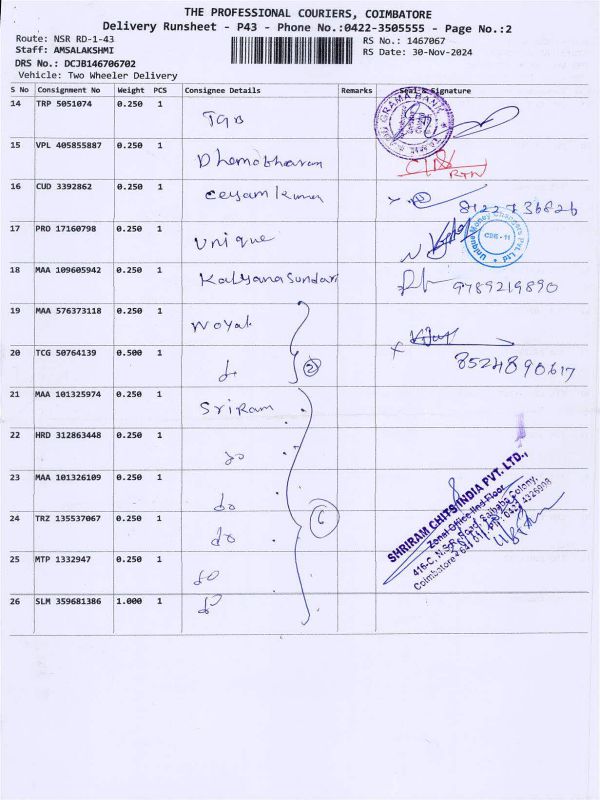 THE PROFESSIONAL COURIERS, COIMBATORE
Delivery Runsheet - P43 - Phone No.:0422-3505555 - Page No.:2
Route: NSR RD-1-43
RS No.: 1467067
Staff: AMSALAKSHMI
RS Date: 30-Nov-2024
DRS No.: DCJB146706702
Vehicle: Two Wheeler Delivery
S No Consignment No Weight PCS Consignee Details Remarks Seal & Signature
14 TRP 5051074 0.250 1 TGB
GRAMA BANK
15 VPL 405855887 0.250 1 Dhamotharan
RTN
16 CUD 3392862 0.250 1 Ceeyam kumar
8122736826
17 PRO 17160798 0.250 1 Unique
Unique Money Changers Pvt. Ltd
CBE - 11
18 MAA 109605942 0.250 1 Kalyanasundari 9789219890
19 MAA 576373118 0.250 1 Woyal
20 TCG 50764139 0.500 1 do 2 8524890617
21 MAA 101325974 0.250 1 Sriram
22 HRD 312863448 0.250 1 do
23 MAA 101326109 0.250 1 do
24 TRZ 135537067 0.250 1 do 6
25 MTP 1332947 0.250 1 do
26 SLM 359681386 1.000 1 do
SHRIRAM CHITS INDIA PVT. LTD.,
Zonal Office IInd Floor
416-C, N.S.R. Road, Saibaba Colony,
Coimbatore - 641 011. 0422 4326908